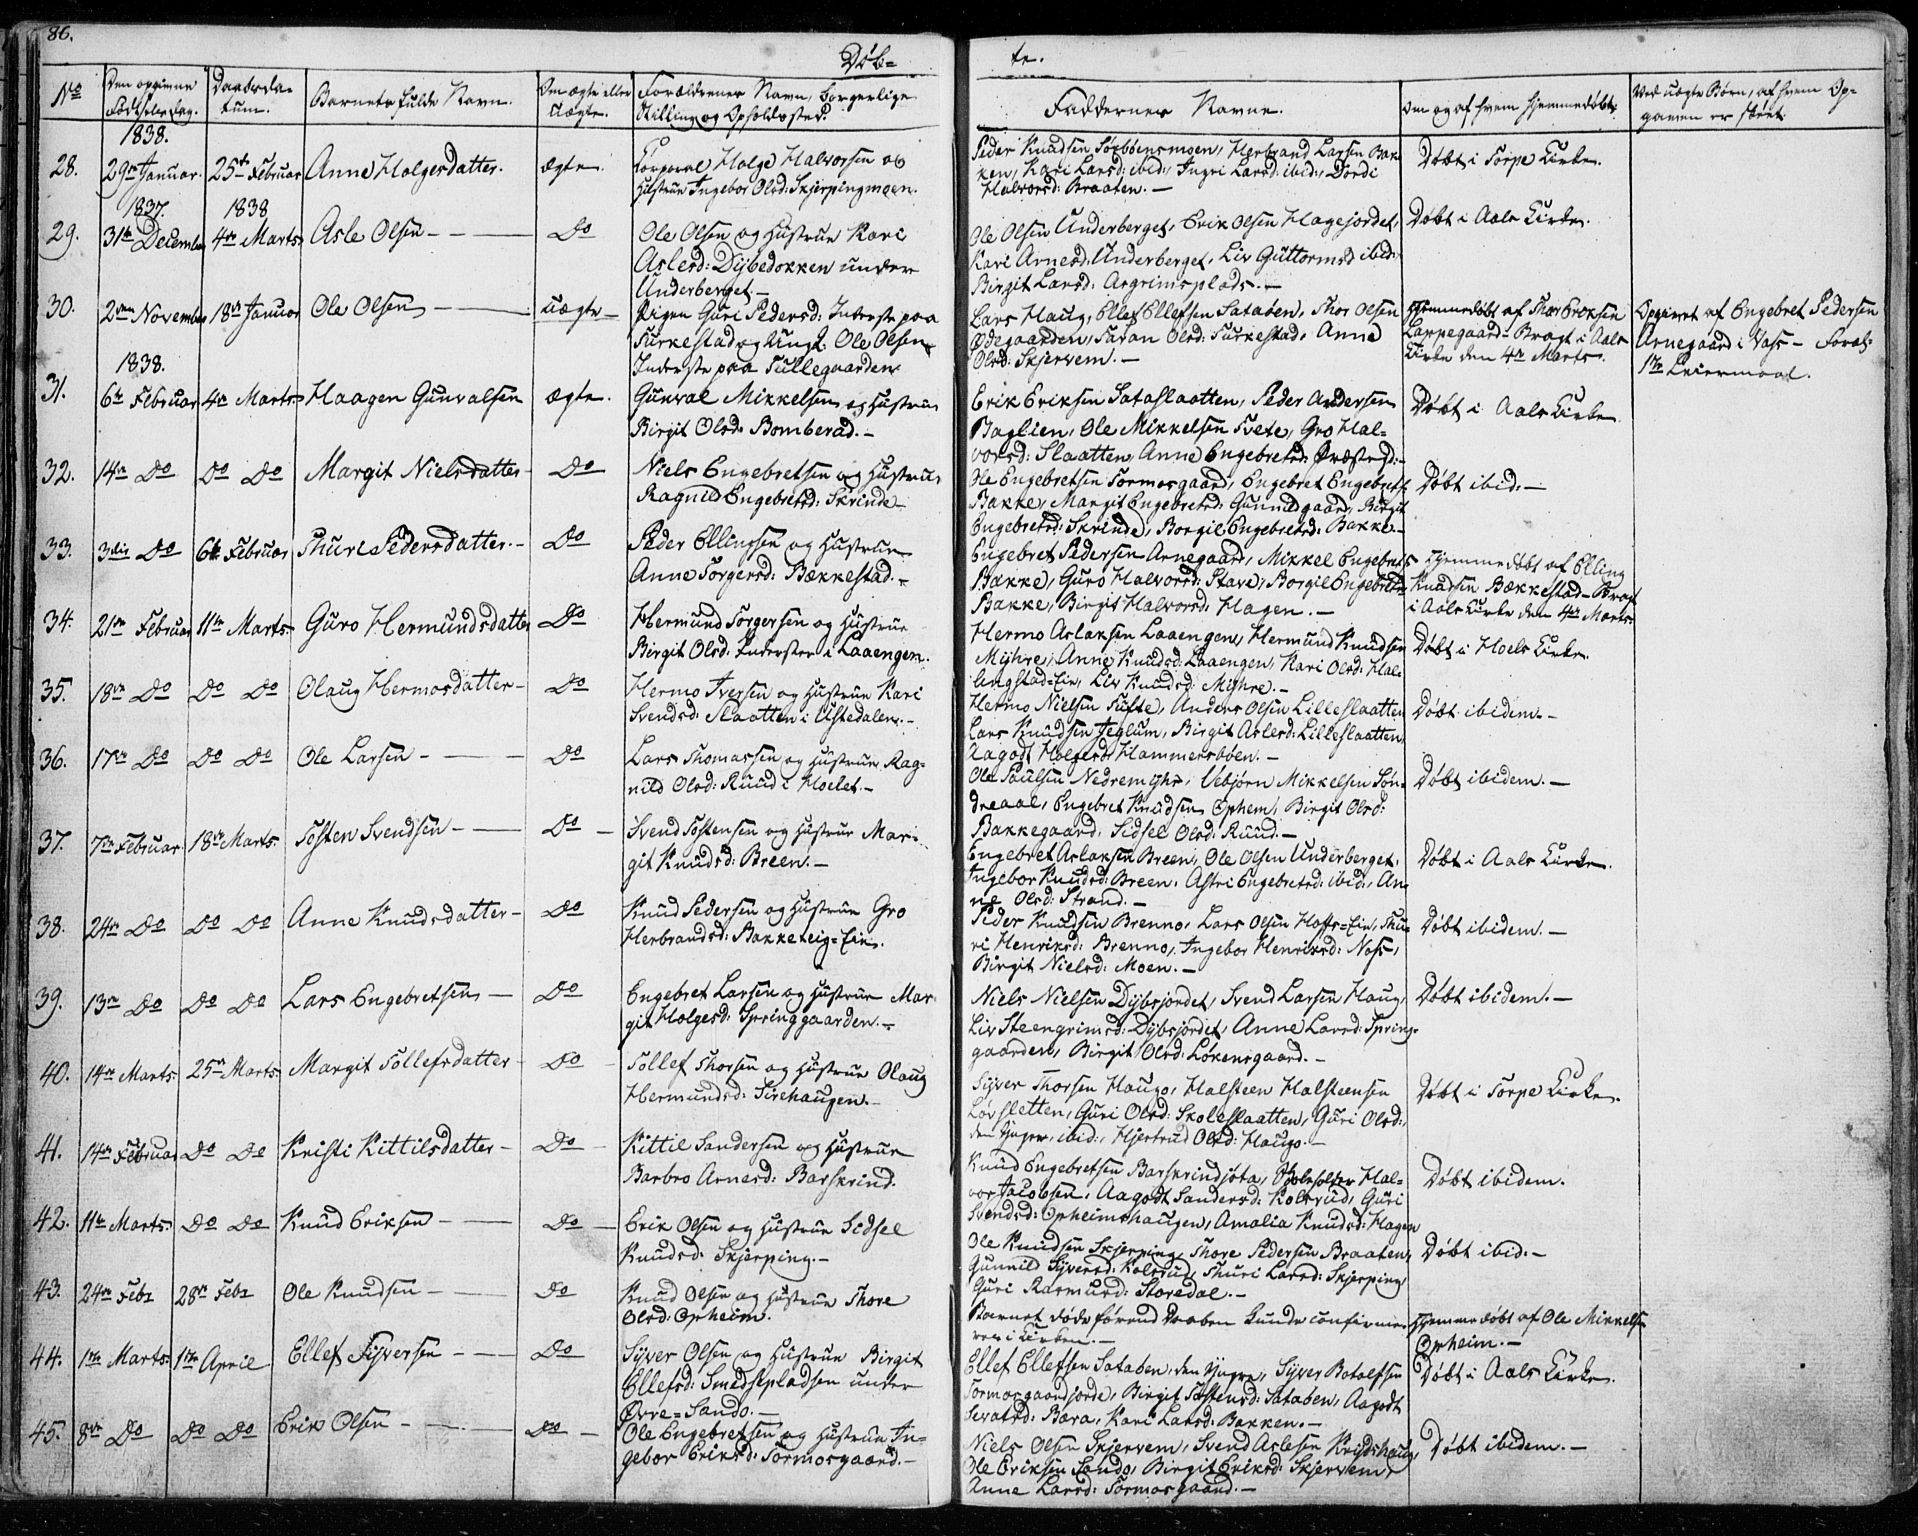 86.
Døb=
te.
No
Den opgivne Fødselsdag.
Daabsda-
tum.
Barnets fulde Navn.
Om ægte eller
uægte.
Forældrenes Navn, borgerlige
Stilling og Opholdssted.
Faddernes Navne.
Om og af hvem hjemmedøbt.
Ved uægte Børn, af hvem Op-
gaven er skeet.
1838.
28. 29de Januar. 25de Februar Anne Holgersdatter. ægte.
Corporal Holge Halvorsen og
Hustrue Ingebor Olsd: Skjerpingmoen.
Peder Knudsen, Herbrand Larsen Bak-
ken, Kari Larsd: ibid:, Ingri Larsd: ibid:, Dordi
Halvorsd: Braaten. —
Døbt i Torpe Kirke.
1837. 1838
29. 31te December 4de Marts Asle Olsen — Do
Ole Olsen og Hustrue Kari
Aslesd: Dybedokken under
Underberget. —
Ole Olsen Underberget, Erik Olsen Hagejordet,
Kari Arnesd: Underberget, Liv Guttormsd ibid:
Birgit Larsd: Asgrimsplads. —
Døbt i Aals Kirke.
30. 2den November 18de Januar Ole Olsen — uægte —
Pigen Guri Pedersd: Inderste paa
Turkestad og Ungk: Ole Olsen
Inderste paa Tullegaarden
Lars Haug, Ellef Ellefsen Sataben, Thor Olsen
Ødegaarden, Faran Olsd: Turkestad, Anne
Olsd: Skjervem. —
Hjemmedøbt af Thor Eriksen
Lappegaard — Bragt i Aals
Kirke den 4de Marts.
Opgivet af Engebret Pedersen
Arnegaard i Vass — Foræl:
1ste Leiermaal.
1838.
31. 6te Februar 4de Marts Haagen Gunvalsen ægte.
Gunval Mikkelsen og Hustrue
Birgit Olsd: Bomberud. —
Erik Eriksen Sataslaatten, Peder Andersen
Baglien, Ole Mikkelsen Tvete, Gro Hal-
vorsd: Slaatten, Anne Engebretsd: Præstegd: —
Døbt i Aals Kirke
32. 14de Do Do Do Margit Nielsdatter — Do
Niels Engebretsen og Hustrue
Ragnild Engebretsd: Skrinde —
Ole Engebretsen Tormosgaard, Engebret Engebrets:
Bakke, Margit Engebretsd: Gunnildgaard, Birgit
Engebretsd: Skrinde, Borgil Engebretsd: Bakke. —
Døbt ibid: —
33. 3die Do 6te Februar Thuri Pedersdatter. — Do
Peder Ellingsen og Hustrue
Anne Torgersd: Bækkestad. —
Engebret Pedersen Arnegaard, Mikkel Engebrets
Bakke, Guro Halvorsd: Stave, Borgil Engebretsd
Bakke, Birgit Halvorsd: Hagen. —
Hjemmedøbt af Elling
Knudsen Bækkestad — Bragt
i Aals Kirke den 4de Marts
34. 21de Februar 11te Marts Guro Hermundsdatter Do
Hermund Torgersen og Hustrue
Birgit Olsd: Inderster i Laaengen.
Hermo Aslaksen Laaengen, Hermund Knudsen
Myhre, Anne Knudsd: Laaengen, Kari Olsd: Hal-
lingstad=Eie, Liv Knudsd: Myhre. —
Døbt i Hoels Kirke.
35. 18de Do Do Do Olaug Hermosdatter — Do
Hermo Iversen og Hustrue Kari
Svendsd: Slaatten i Ustedalen. —
Hermo Nielsen Tufte, Anders Olsen Lilleslaatten
Lars Knudsen Jeglum, Birgit Aslesd: Lilleslaatten,
Aagodt Holgersd: Hammersbøen. —
Døbt ibidem. —
36. 17de Do Do Do Ole Larsen — Do
Lars Thomassen og Hustrue Rag-
nild Olsd: Ruud i Hoelet —
Ole Paulsen Nedremyhr, Vebjørn Mikkelsen Søn-
dreaal, Engebret Knudsen Opheim, Birgit Olsd:
Bakkegaard, Sidsel Olsd: Ruud. —
Døbt ibidem. —
37. 7de Februar 18de Marts Tosten Svendsen — Do —
Svend Tostensen og Hustrue Mar-
git Knudsd: Breen. —
Engebret Aslaksen Breen, Ole Olsen Underberget,
Ingebor Knudsd: Breen, Astri Engebretsd: ibid:, An-
ne Olsd: Strand. —
Døbt i Aals Kirke.
38. 24de Do Do Do Anne Knudsdatter — Do
Knud Pedersen og Hustrue Gro
Herbrandsd: Bakketeig=Eie.
Peder Knudsen Brenno, Lars Olsen Hoffs=Eie, Thu-
ri Henriksd: Brenno, Ingebor Henriksd: Noss,
Birgit Nielsd: Moen. —
Døbt ibidem. —
39. 13de Do Do Do Lars Engebretsen — Do
Engebret Larsen og Hustrue Mar-
git Holgesd: Springgaarden. —
Niels Nielsen Dybsjordet, Svend Larsen Haug,
Liv Steengrimsd: Dybsjordet, Anne Larsd: Spring-
gaarden, Birgit Olsd: Løkensgaard. —
Døbt ibidem. —
40. 14de Marts 25de Marts Margit Tollefsdatter — Do —
Tollef Thorsen og Hustrue Olaug
Hermundsd: Sirehaugen. —
Syver Thorsen Haugo, Halsteen Halsteensen
Løvsletten, Guri Olsd: Skoleslaatten, Guri Olsd:
den Yngre, ibid:, Hjertrud Olsd: Haugo. —
Døbt i Torpe Kirke.
41. 14de Februar Do Do Kristi Kittilsdatter — Do —
Kittil Sandersen og Hustrue
Barbro Arnesd: Barskrind.
Knud Engebretsen Barskrindjota, Skoleholder Hal-
vor Jacobsen, Aagodt Sandersd: Kolsrud, Guri
Svendsd: Opheimshaugen, Amalia Knudsd: Hagen
Døbt ibidem.
42. 11te Marts Do Do Knud Eriksen — Do —
Erik Olsen og Hustrue Sidsel
Knudsd: Skjerping. —
Ole Knudsen Skjerping, Thore Pedersen Braaten,
Gunnild Syversd: Kolsrud, Thuri Larsd: Skjerping,
Guri Rasmusd: Storedal. —
Døbt ibid: —
43. 24de Febr 28de Febr Ole Knudsen — Do
Knud Olsen og Hustrue Thore
Olsd: Opheim.
Barnet døde førend Daaben kunde confirme-
res i Kirken. —
Hjemmedøbt af Ole Mikkelse
Opheim. —
44. 1ste Marts 1ste April Ellef Syversen — Do
Syver Olsen og Hustrue Birgit
Ellefsd: Smedsepladsen under
Øvre=Sando. —
Ellef Ellefsen Sataben, den Yngre, Syver Botolfsen
Tormosgaardjorde, Birgit Tostensd: Sataben, Aagodt
Sevatsd: Bæra, Kari Larsd: Bakken. —
Døbt i Aals Kirke.
45. 8de Do Do Do Erik Olsen — Do —
Ole Engebretsen og Hustrue In-
gebor Eriksd: Tormosgaard. —
Niels Olsen Skjervem, Svend Aslesen Kvisdshaug,
Ole Eriksen Sando, Birgit Eriksd: Skjervem,
Anne Larsd: Tormosgaard. —
Døbt ibidem. —